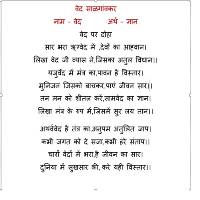 वेद साळगांवकर
नाम - वेद अर्थ - मान
वेद पर दोहा
सार भरा ऋग्वेद में ,देवों का आहवान।
लिखा वेद जी व्यास ने,जिसका अतुल विधान।।
यजुर्वेद में मंत्र का,पावन है विस्तार।
मुनिजन जिसको बाचका,पाएं जीवन सार।।
तन मन को शीतल करे,सामवेद का गान।
लिखा मंत्र के रूप में,जिसमें सुर लय तान।।
अथर्ववेद है तंत्र का,अनुपम अतुलित जाप।
कभी जगत को दे सजा,कभी हरे संताप।।
चारों वेदों में भरा,है जीवन का सार।
दुनिया में सुखसार की, करे यही विस्तार।।